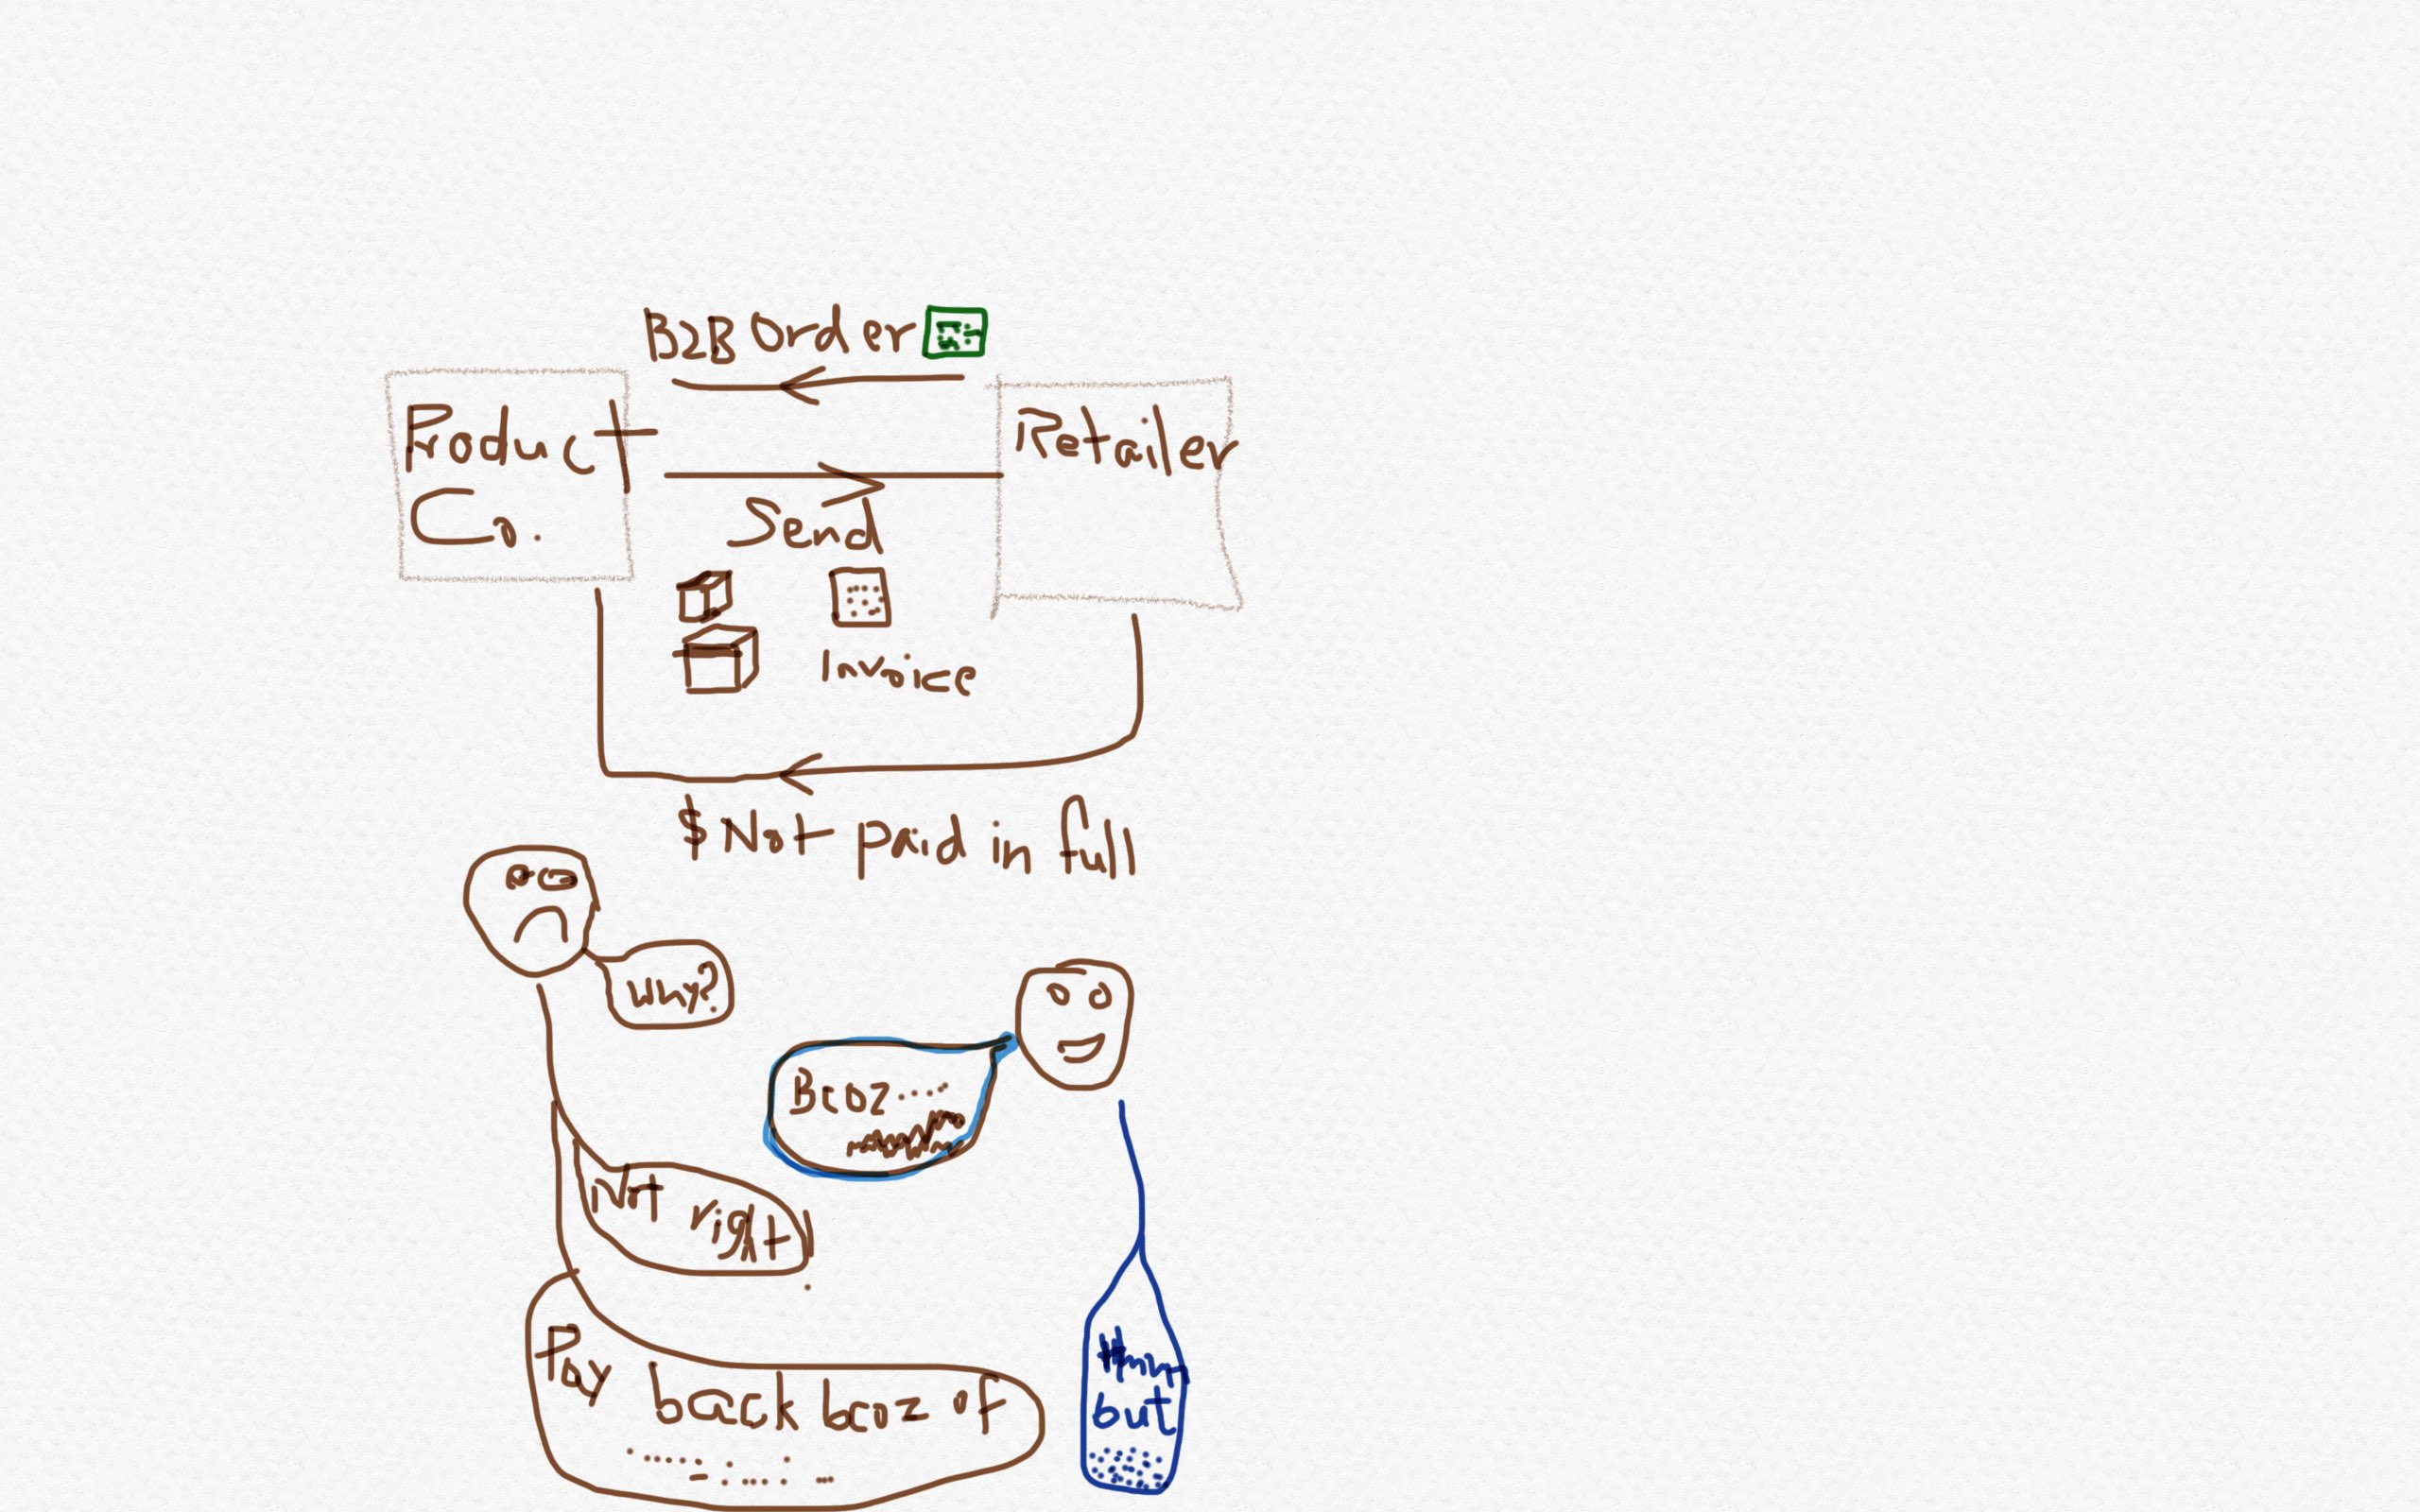 B2B Order
Product
Co.
Retailer
Send
Invoice
$ Not paid in full
Why?
Bcoz.....
Not right
Pay back bcoz of
Hmm
but